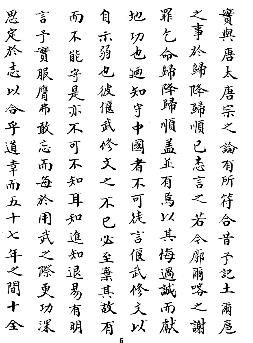 實與唐太唐宗之論有所符合昔予記土爾扈
之事於歸降歸順已志言之若今廓爾喀之謝
罪乞命歸降歸順蓋並有焉以其悔過誠而獻
地功也迺知守中國者不可徒言偃武修文以
自示弱也彼偃武修文之不已必至棄其故有
而不能守是亦不可不知耳知進知退易有明
言予實服膺弗敢忘而每於用武之際更功深
思定於志以合乎道幸而五十七年之間十全